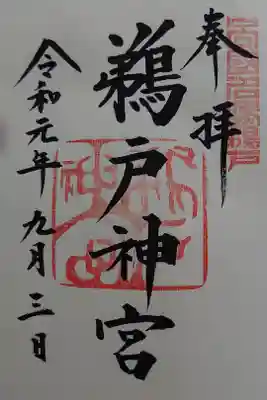 奉拝
鵜戸神宮
令和元年九月三日